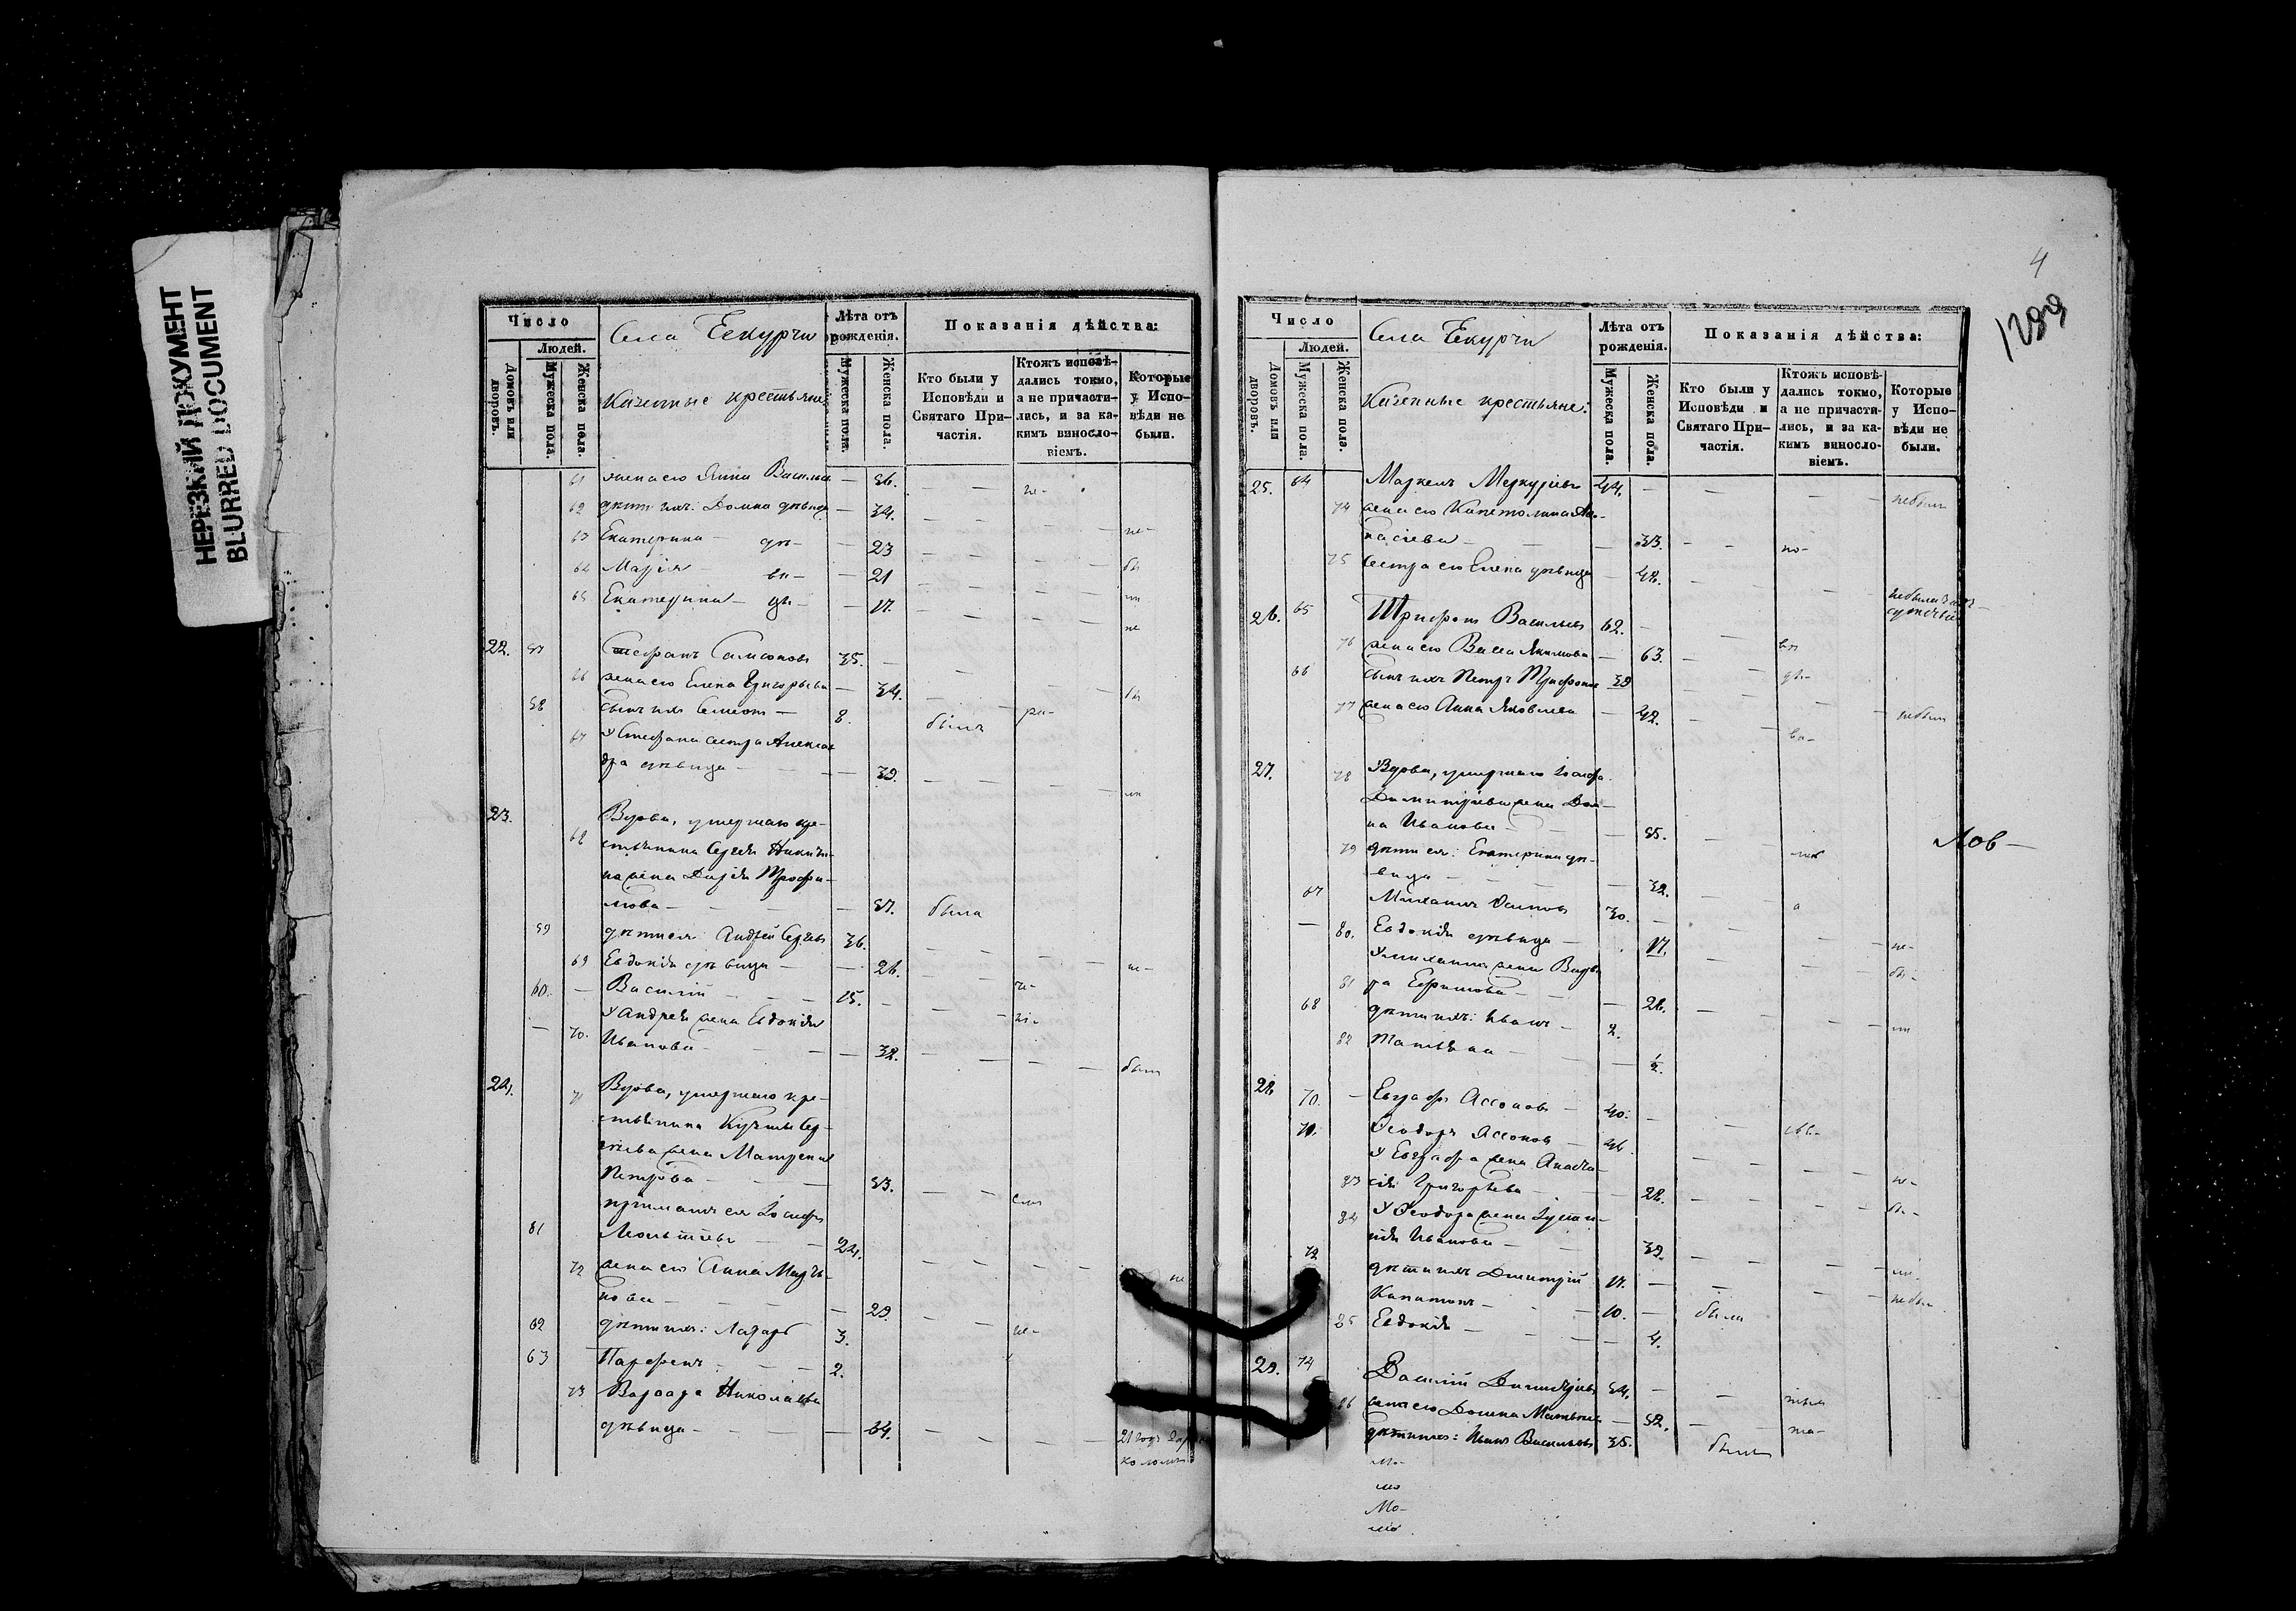 НЕРЕЗКИЙ ДОКУМЕНТ
BLURRED DOCUMENT
Число
Людей.
Домовъ или дворовъ.
Мужеска пола.
Женска пола.
Села Чекурчи
Казенные крестьяне:
Лѣта отъ рожденія.
Мужеска пола.
Женска пола.
Показанія дѣйства:
Кто были у Исповѣди и Святаго Причастія.
Ктожъ исповѣдались токмо, а не причастились, и за какимъ винословіемъ.
Которые у Исповѣди не были.
61 жена его Анна Василье — 56.
62 дѣти ихъ: Домна дѣвица — 34.
63 Екатерина — дѣ — — 23
64 Марія — ви — — 21
65 Екатерина — цы — — 17.
22. 57 Стефанъ Самсоновъ 35. —
66 жена его Елена Григорьева — 34.
58 сынъ ихъ Симеонъ — 8. былъ
67 У Стефана сестра Алексан
дра дѣвица — — 39.
23. 68 Вдова, умершаго кре-
стьянина Сергѣя Никити-
на жена Дарія Трофи-
мова — — 57. была
59 дѣти ея: Андрей Сергѣевъ 36.
69 Евдокія дѣвица — — 26.
60. — Василій — — 15. —
У Андрея жена Евдокія
— 70. Иванова — — 32.
24. 71 Вдова, умершаго кре-
стьянина Кузмы Сер-
гѣева жена Матрена
Петрова — — 53.
приматъ ея Іосифъ
61 Леонтіевъ — — 24.
72 жена его Анна Март-
нова — — 29.
62 дѣти ихъ: Лазарь 3.
63 Парфенъ — — 2.
73 Варвара Николаева
дѣвица — — 64.
4
1289
Число
Людей.
Домовъ или дворовъ.
Мужеска пола.
Женска пола.
Села Чекурчи
Казенные крестьяне:
Лѣта отъ рожденія.
Мужеска пола.
Женска пола.
Показанія дѣйства:
Кто были у Исповѣди и Святаго Причастія.
Ктожъ исповѣдались токмо, а не причастились, и за какимъ винословіемъ.
Которые у Исповѣди не были.
25. 64 Маркелъ Меркурьевъ 44. — небыли
74 жена его Капетолина Аѳа-
насіева — 33.
75 сестра его Елена дѣвица — 48.
26. 65 Трифонъ Васильевъ 62.
76 жена его Васса Якимова — 63.
66 сынъ ихъ Петръ Трифоновъ 39 небыли
77 жена его Анна Яковлева — 42.
27. 78 Вдова, умершаго Іосифа
Димитріева жена Дом-
на Иванова — — 55.
79 дѣти ея: Екатерина дѣ-
вица — — 32.
67 Михаилъ Осиповъ 30. —
— 80. Евдокія дѣвица — 17.
У Михаила жена Варва
81 ра Ефимова — — 28.
68 дѣти ихъ: Иванъ — 2.
82 Татьяна — — ½.
28. 70. — Евграфъ Ассоновъ — 40.
71. Ѳеодоръ Ассоновъ — 46
У Евграфа жена Анаста-
83 сія Григорьева — 28.
84 У Ѳеодора жена Іустин-
нія Иванова — 39.
72 дѣти ихъ Дмитрій 17. —
Капитонъ — 10. — была
85 Евдокія — — 4.
29. 74 Василій Димитріевъ 54. —
86 жена его Домна Матвѣева — 52.
дѣти ихъ: Иванъ Васильевъ 35. былъ
Лов —